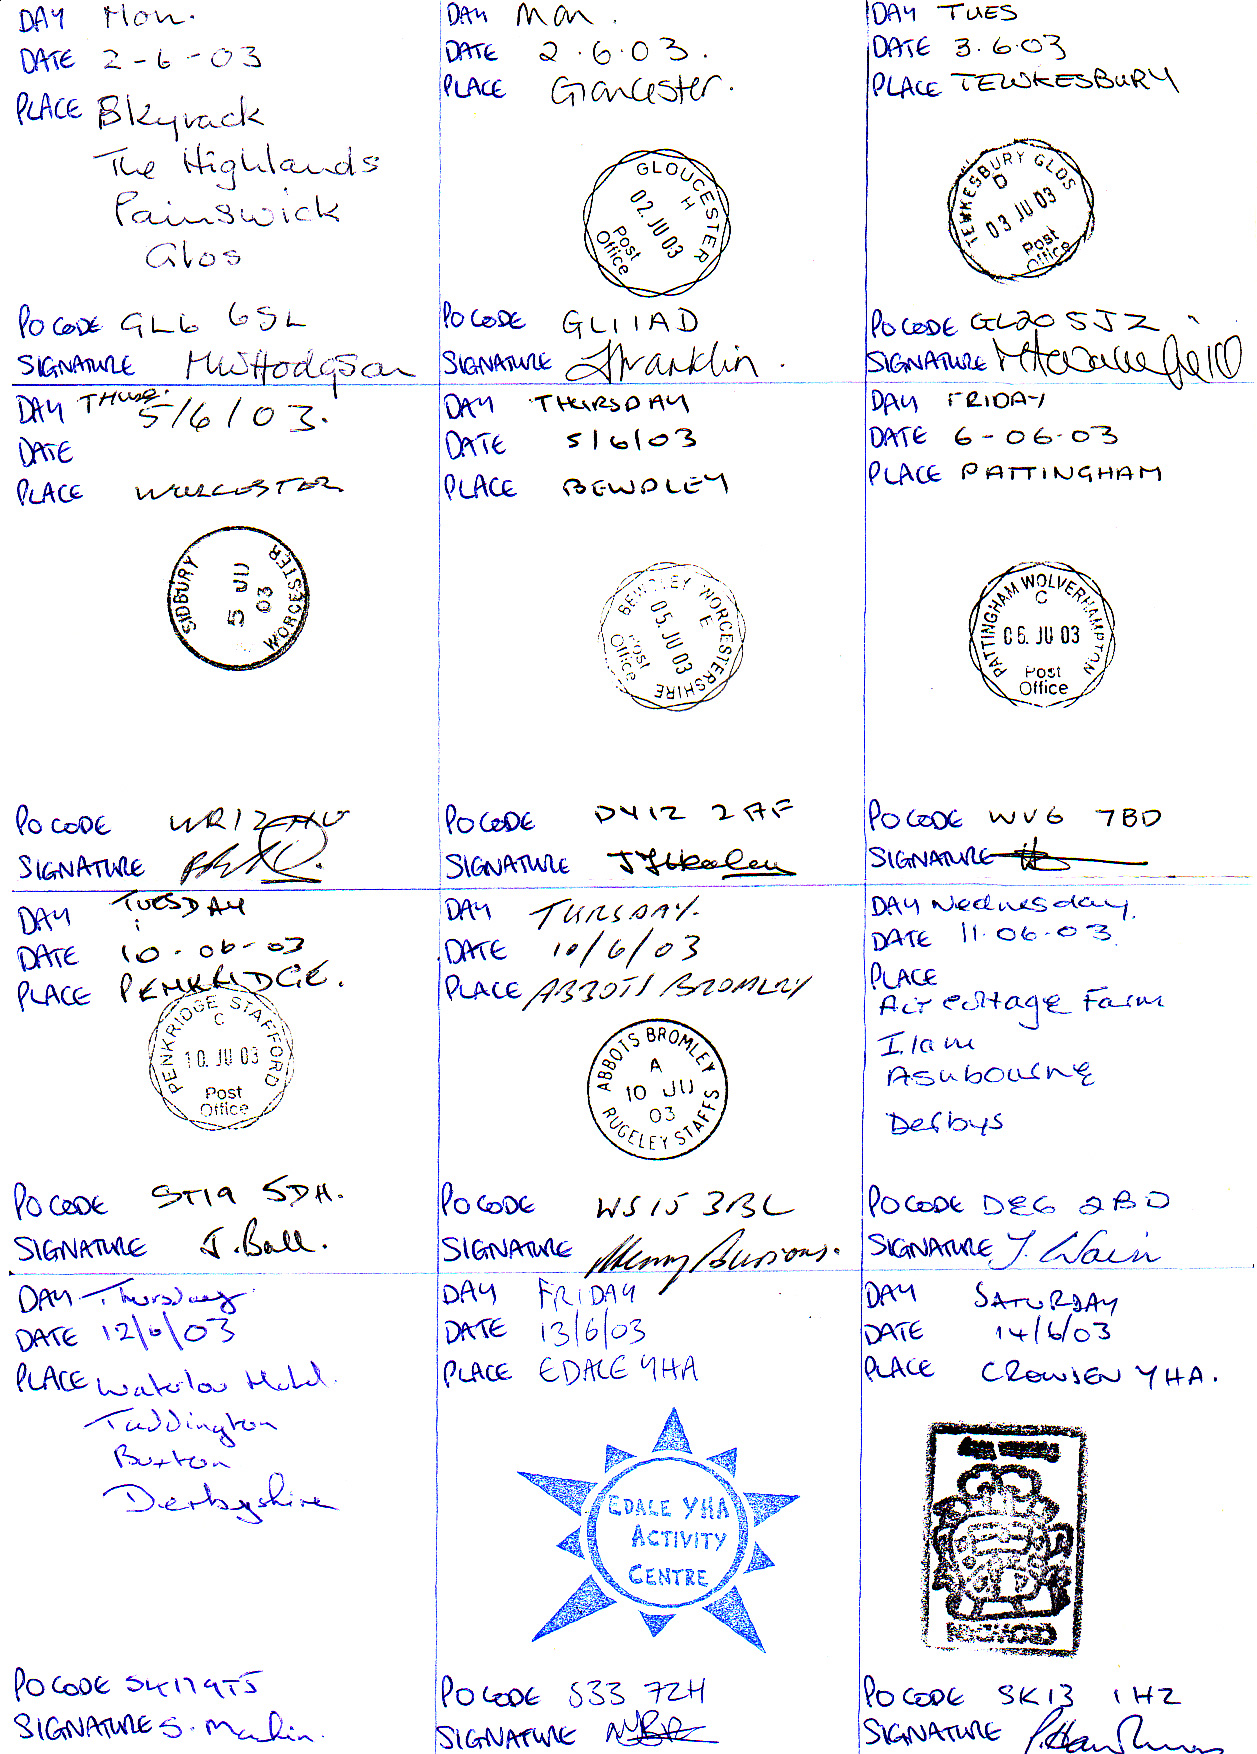 DAY Mon.
DATE 2-6-03
PLACE Skyrack
The Highlands
Painswick
Glos
PO CODE GL6 6SL
SIGNATURE M W Hodgson
DAY Mon.
DATE 2.6.03.
PLACE Gloucester.
GLOUCESTER
H
02. JU 03
Post
Office
PO CODE GL1 1AD
SIGNATURE J Franklin.
DAY TUES
DATE 3.6.03
PLACE TEWKESBURY
TEWKESBURY GLOS
D
03 JU 03
Post
Office
PO CODE GL20 5JZ
SIGNATURE
DAY THUR.
5/6/03.
DATE
PLACE WORCESTER
SIDBURY WORCESTER
5 JU
03
PO CODE WR1 2
SIGNATURE
DAY THURSDAY
DATE 5/6/03
PLACE BEWDLEY
BEWDLEY WORCESTERSHIRE
E
05. JU 03
Post
Office
PO CODE DY12 2AF
SIGNATURE
DAY FRIDAY
DATE 6-06-03
PLACE PATTINGHAM
PATTINGHAM WOLVERHAMPTON
C
06. JU 03
Post
Office
PO CODE WV6 7BD
SIGNATURE
DAY TUESDAY
DATE 10-06-03
PLACE PENKRIDGE.
PENKRIDGE STAFFORD
C
10. JU 03
Post
Office
PO CODE ST19 5DH.
SIGNATURE J. Ball.
DAY TURSDAY.
DATE 10/6/03
PLACE ABBOTS BROMLEY
ABBOTS BROMLEY
A
10 JU
03
RUGELEY STAFFS
PO CODE WS15 3BL
SIGNATURE Henry Burrows.
DAY Wednesday.
DATE 11.06.03
PLACE
Air cottage Farm
Ilam
Ashbourne
Derbys
PO CODE DE6 2BD
SIGNATURE J. Wain
DAY Thursday
DATE 12/6/03
PLACE Waterloo Hotel.
Taddington
Buxton
Derbyshire
PO CODE SK17 9TJ
SIGNATURE S. Marlin.
DAY FRIDAY
DATE 13/6/03
PLACE EDALE YHA
EDALE YHA
ACTIVITY
CENTRE
PO CODE S33 7ZH
SIGNATURE
DAY SATURDAY
DATE 14/6/03
PLACE CROWDEN YHA.
PO CODE SK13 1HZ
SIGNATURE